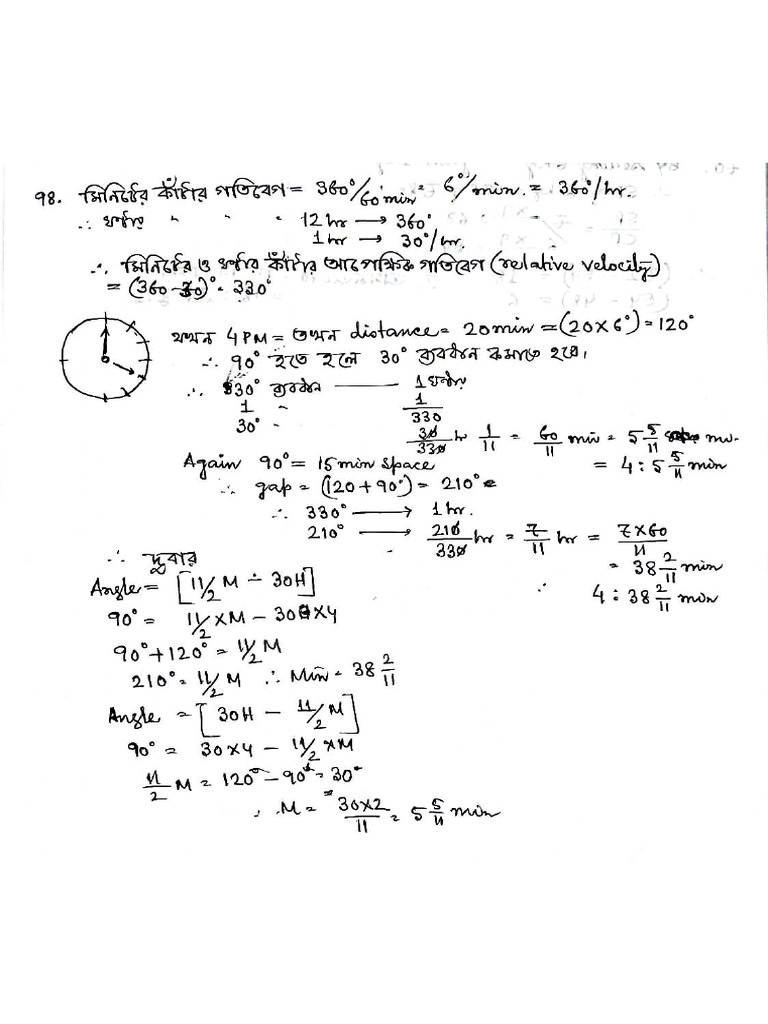 98. মিনিটের কাঁটার গতিবেগ = 360°/60 min = 6°/min. = 360°/hr.
∴ ঘণ্টার " " " 12 hr → 360°
1 hr → 30°/hr.
∴ মিনিটের ও ঘণ্টার কাঁটার আপেক্ষিক গতিবেগ (relative velocity)
= (360 - 30)° = 330°
যখন 4 PM = তখন distance = 20 min = (20 × 6°) = 120°
∴ 90° হতে হলে 30° ব্যবধান কমাতে হবে।
∴ 330° ব্যবধান — 1 ঘণ্টায়
1 " 1/330
30° " 30/330 hr 1/11 = 60/11 min = 5 5/11 min.
Again 90° = 15 min space = 4 : 5 5/11 min
∴ gap = (120 + 90°) = 210°
∴ 330° → 1 hr.
210° → 210/330 hr = 7/11 hr = 7×60/11
∴ দুবার = 38 2/11 min
Angle = [11/2 M - 30H] ∴ 4 : 38 2/11 min
90° = 11/2 × M - 30 × 4
90° + 120° = 11/2 M
210° = 11/2 M ∴ Min = 38 2/11
Angle = [30H - 11/2 M]
90° = 30 × 4 - 11/2 × M
11/2 M = 120° - 90° = 30°
∴ M = 30×2/11 = 5 5/11 min